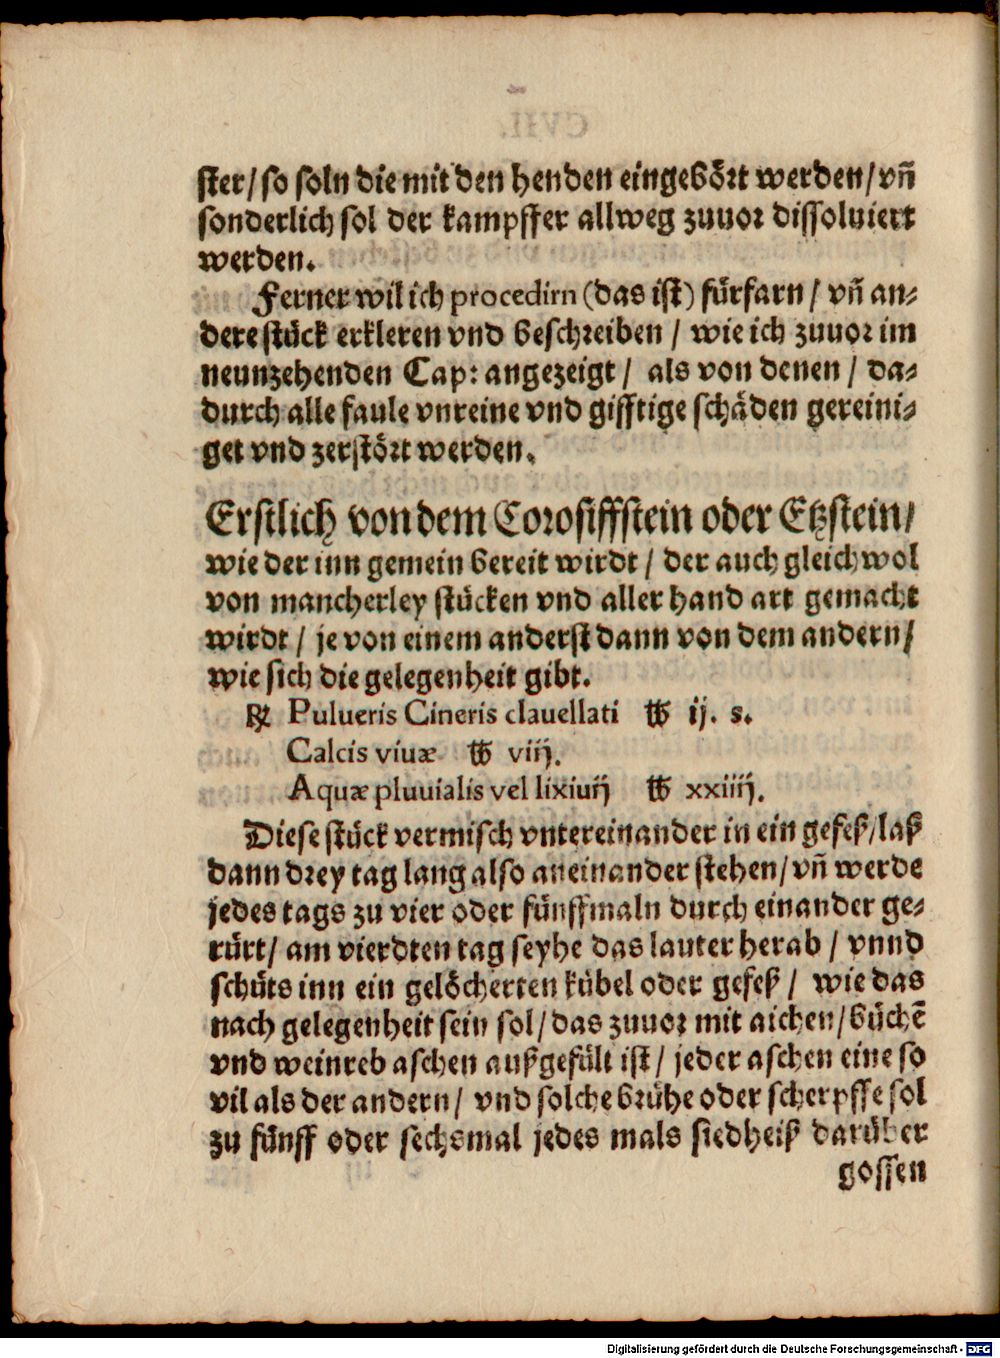 ſter/ ſo ſoln die mit den henden eingebört werden/ vñ
ſonderlich ſol der kampffer allweg zuuor diſſoluiert
werden.
Ferner wil ich procedirn (das iſt) fürfarn / vñ an⸗
dere ſtück erkleren vnd beſchreiben / wie ich zuuor im
neunzehenden Cap: angezeigt / als von denen / da⸗
durch alle faule vnreine vnd gifftige ſchäden gereini⸗
get vnd zerſtört werden.
Erſtlich von dem Coroſiffſtein oder Etzſtein/
wie der inn gemein bereit wirdt / der auch gleich wol
von mancherley ſtücken vnd aller hand art gemacht
wirdt / je von einem anderſt dann von dem andern/
wie ſich die gelegenheit gibt.
℞ Pulueris Cineris clauellati ℔ ij. s.
Calcis viuæ ℔ viij.
Aquæ pluuialis vel lixiuij ℔ xxiiij.
Dieſe ſtück vermiſch vntereinander in ein gefeß/ laß
dann drey tag lang alſo aneinander ſtehen/ vñ werde
jedes tags zu vier oder fünffmaln durch einander ge⸗
rürt/ am vierdten tag ſeyhe das lauter herab / vnnd
ſchüts inn ein gelöcherten kübel oder gefeß / wie das
nach gelegenheit ſein ſol/ das zuuor mit aichen/ büchẽ
vnd weinreb aſchen außgefült iſt/ jeder aſchen eine ſo
vil als der andern/ vnd ſolche brühe oder ſcherpffe ſol
zu fünff oder ſechsmal jedes mals ſiedheiß darüber
goſſen
Digitalisierung gefördert durch die Deutsche Forschungsgemeinschaft - DFG